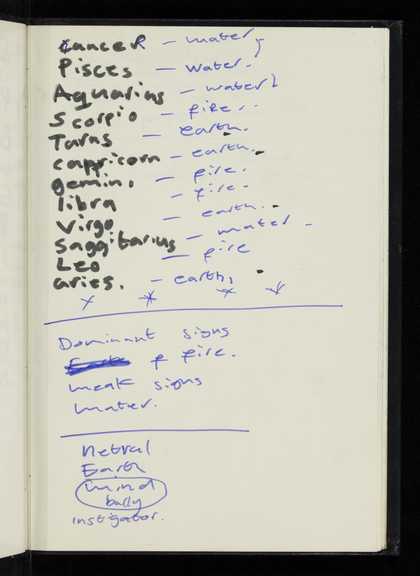 cancer – water
Pisces – water.
Aquarius – water
Scorpio – fire..
Tarus – earth.
cappricorn – earth.
gemini – fire.
libra – fire.
Virgo – earth.
Saggitarius – water –
Leo – fire
aries. – earth,
Dominant signs
& fire.
weak signs
water.
Netral
Earth
wind
bully
instigator.